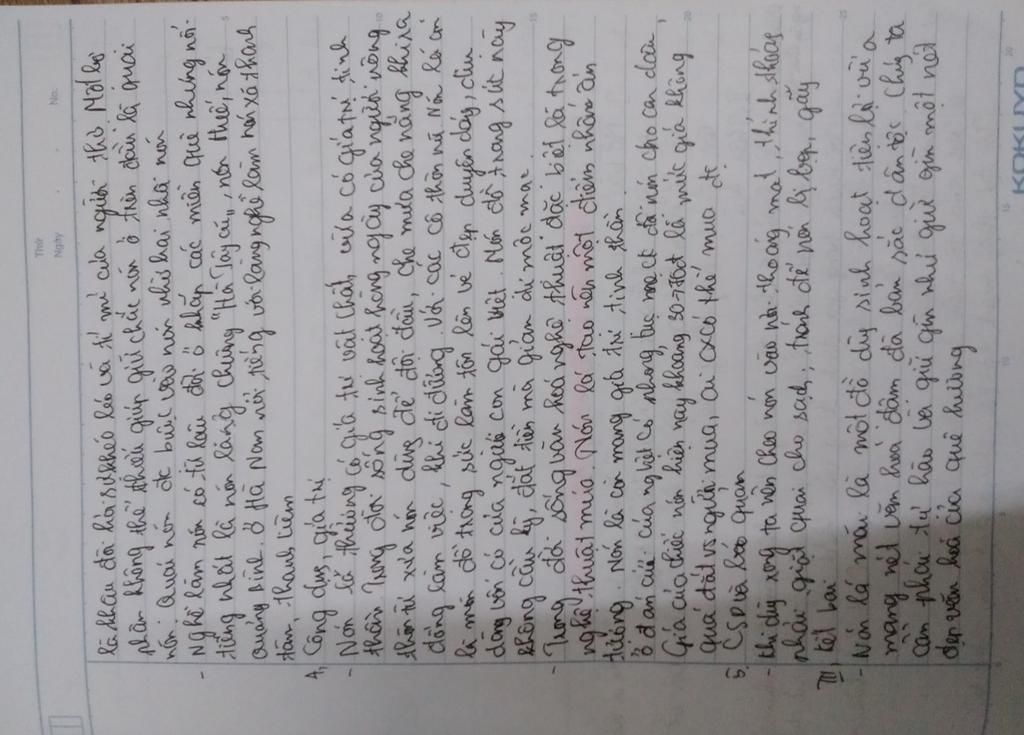 Thứ
Ngày
No.
là khâu đòi hỏi sự khéo léo và tỉ mỉ của người thợ. Một bộ
phận không thể thiếu giúp giữ chắc nón ở trên đầu là quai
nón. Quai nón đc buộc vào nón nhờ hai nhôi nón
- Nghề làm nón có từ lâu đời ở khắp các miền quê nhưng nổi
tiếng nhất là nón làng chuông "Hà Tây cũ", nón Huế, nón
Quảng Bình. Ở Hà Nam nổi tiếng với làng nghề làm nón xã thanh
tâm, thanh liêm
4, Công dụng, giá trị
- Nón lá thường có giá trị vật chất, vừa có giá trị tinh
thần. Trong đời sống sinh hoạt hàng ngày của người nông
thôn từ xưa nón dùng để đội đầu, che mưa che nắng khi ra
đồng làm việc, khi đi đường. Với các cô thôn nữ Nón lá còn
là món đồ trang sức làm tôn lên vẻ đẹp duyên dáng, dịu
dàng vốn có của người con gái Việt. Nón đồ trang sức này
không cầu kỳ, đắt tiền mà giản dị mộc mạc.
- Trong đời sống văn hoá nghệ thuật đặc biệt là trong
nghệ thuật múa. Nón lá tạo nên một điểm nhấn ấn
tượng. Nón lá còn mang giá trị tinh thần
ở đám cưới của ng việt có phong tục mẹ ck đội nón cho con dâu,
Giá của chiếc nón hiện nay khoảng 30-70 là mức giá không
quá đắt vs người mua, ai cx có thể mua đc.
5. CS và bảo quản
- Khi dùng xong ta nên treo nón vào nơi thoáng mát, thỉnh thoảng
phải giặt quai cho sạch, tránh để nón bị bẹp, gãy
III, kết bài
- Nón lá mãi là một đồ dùng sinh hoạt tiện lợi vừa
mang nét văn hoá đậm đà bản sắc dân tộc. Chúng ta
cần phải tự hào và giữ gìn như giữ gìn một nét
đẹp văn hoá của quê hương
KOKUYO